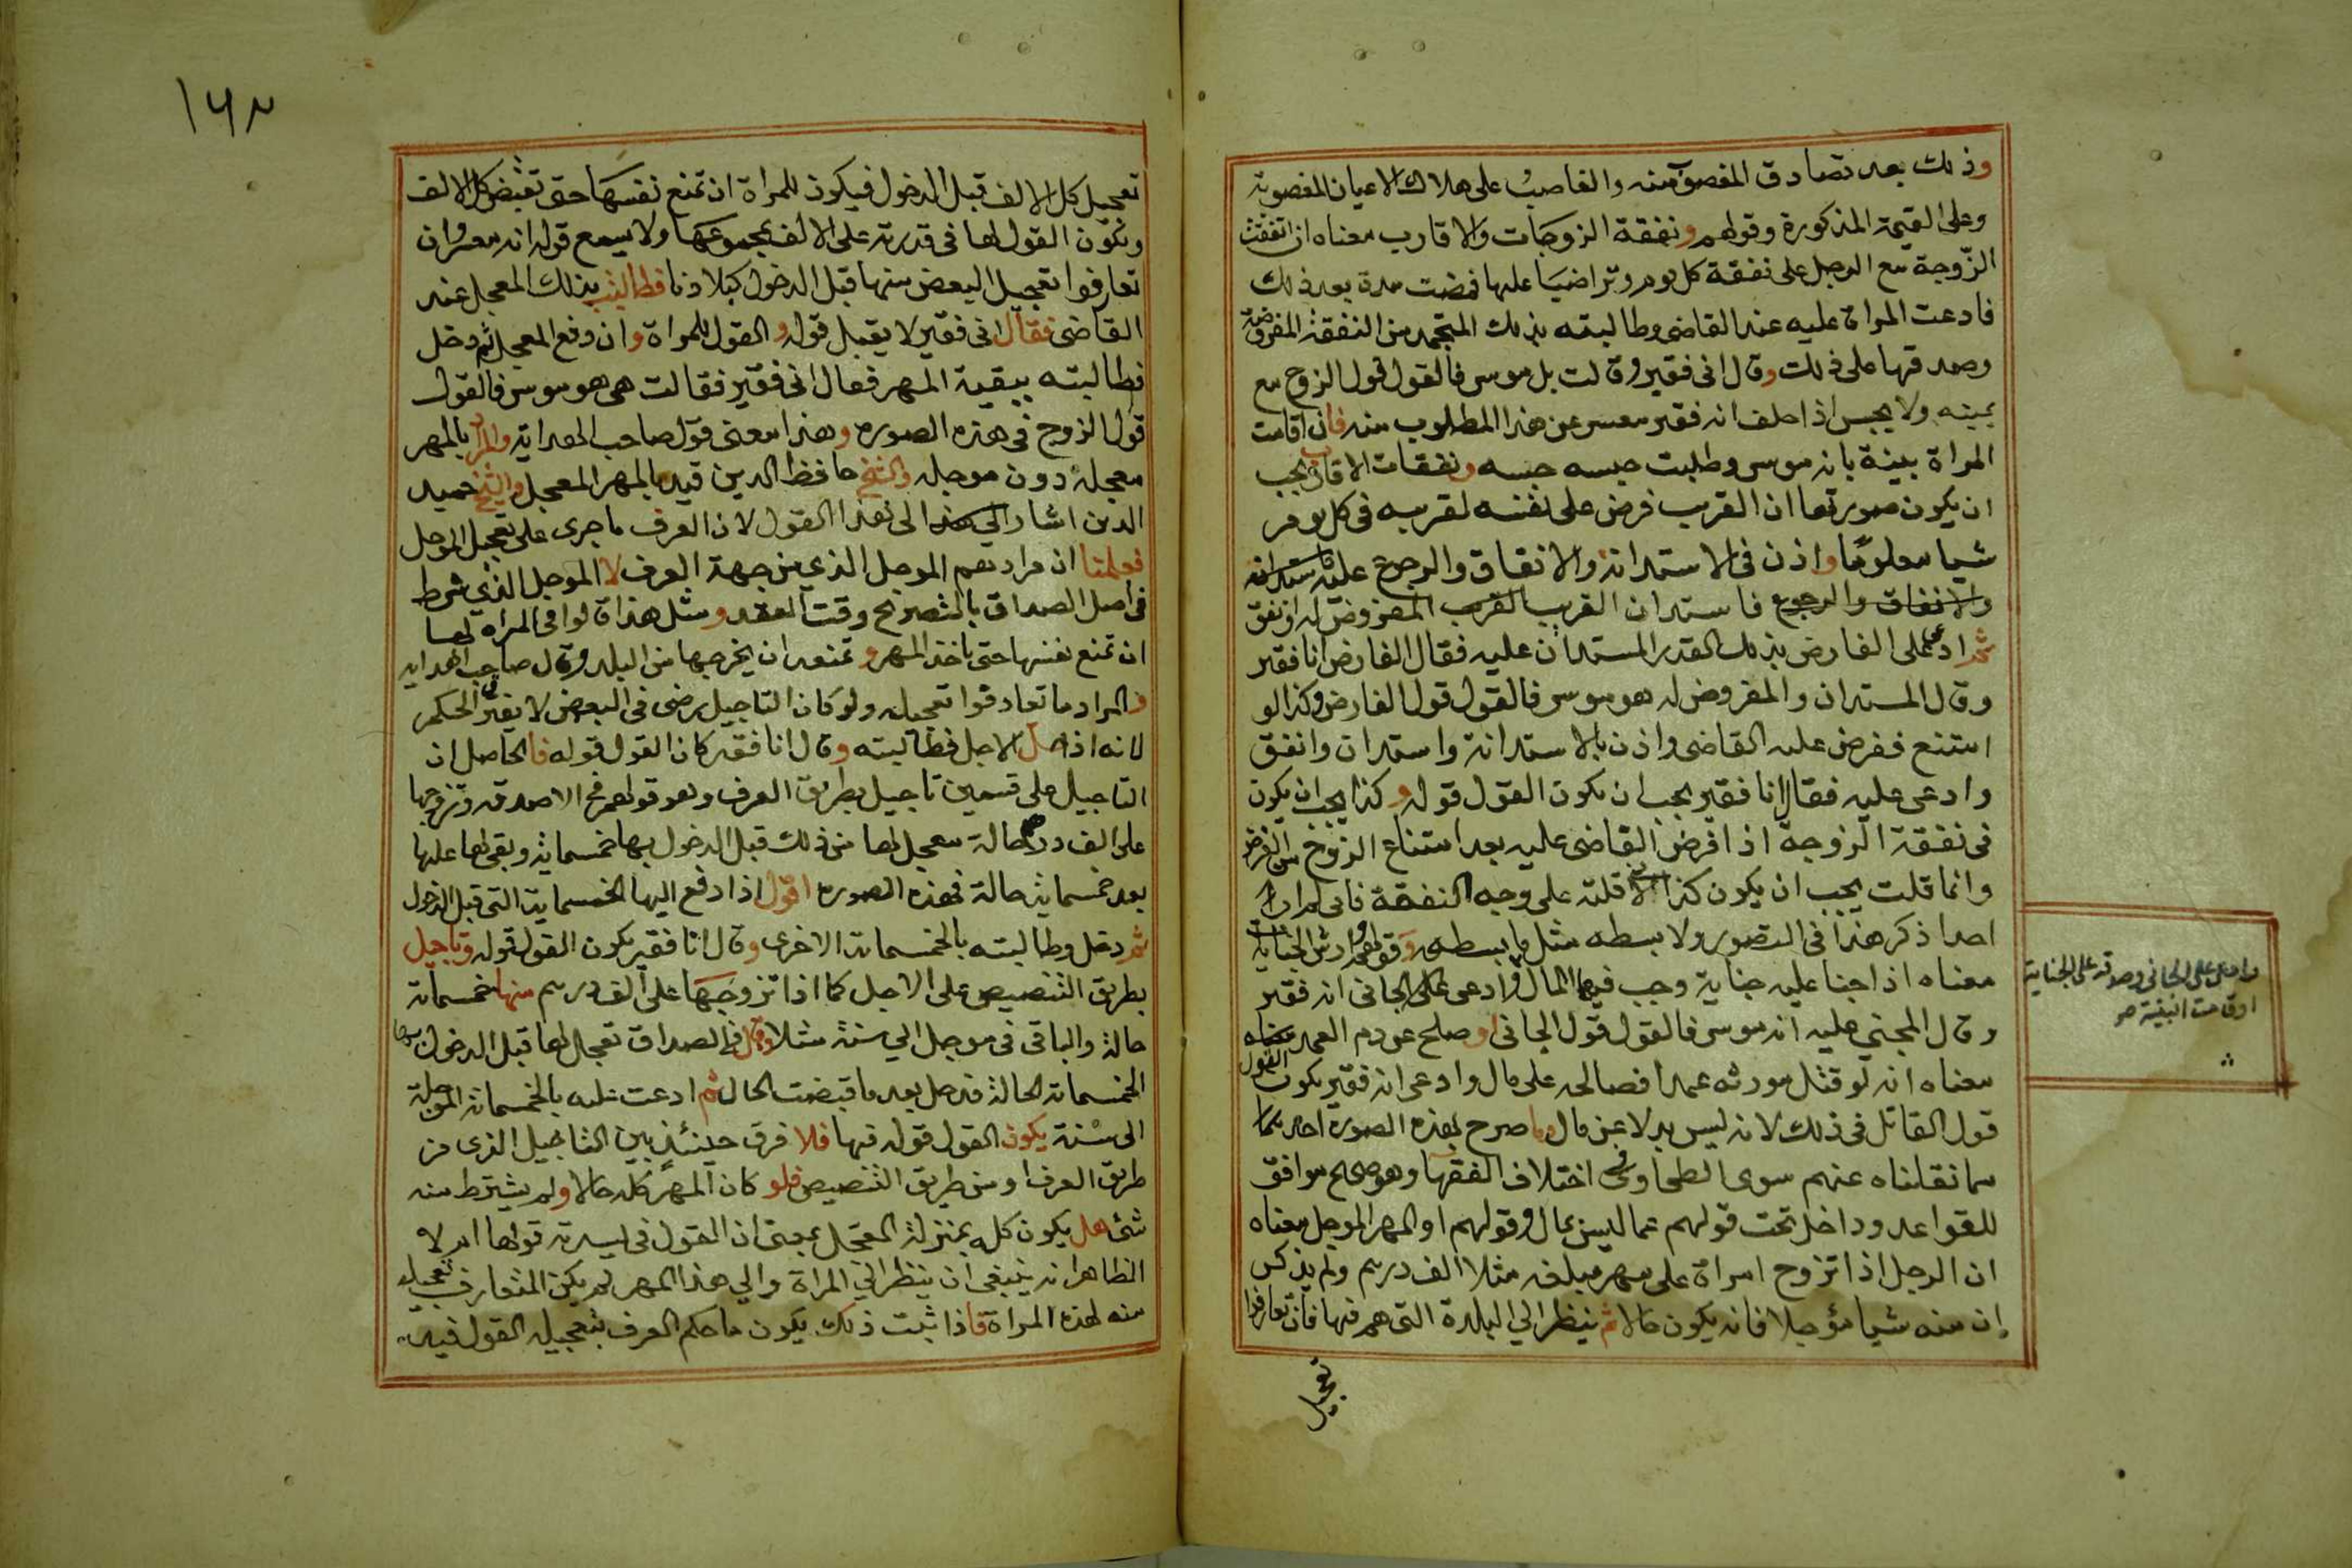 وذلك بعد تصادق المغصوب منه والغاصب على هلاك الاعيان المغصوبة
وعلى القيمة المذكورة وقولهم ونفقة الزوجات والاقارب معناه ان اتفقت
الزوجة مع الرجل على نفقة كل يوم وتراضيا عليها فمضت مدة بعد ذلك
فادعت المراة عليه عند القاضى وطالبته بذلك المتجمد من النفقة المفروضة
وصدقها على ذلك وقال انى فقير وقالت بل موسر فالقول قول الزوج مع
يمينه ولا يحبس اذا حلف انه فقير معسر عن هذا المطلوب منه فان اقامت
المراة بينة بانه موسر وطلبت حبسه حبسه ونفقات الاقارب يجب
ان يكون صورتها ان القريب فرض على نفسه لقريبه فى كل يوم
شيا معلوما واذن فى الاستدانة والانفاق والرجوع عليه
والانفاق والرجوع فاستدان القريب القريب المفروض له وانفق
ثم ادعى على الفارض بذلك القدر المستدان عليه فقال الفارض انا فقير
وقال المستدان والمفروض له هو موسر فالقول قول الفارض وكذا لو
امتنع ففرض عليه القاضى واذن بالاستدانة واستدان وانفق
وادعى عليه فقال انا فقير يجب ان يكون القول قوله وكذا يجب ان يكون
فى نفقة الزوجة اذا فرض القاضى عليه بعد امتناع الزوج من الفرض
وانما قلت يجب ان يكون كذا لما قلته على وجه النفقة فانى لم ار
احدا ذكر هذا فى التصوير ولا بسطه مثل ما بسطه وقولهم وارش الجناية
معناه اذا جنا عليه جناية وجب فيها المال وادعى على الجانى انه فقير
وادعى على الجانى وصدقه على الجناية
او قامت البينة صح
وقال المجنى عليه انه موسر فالقول قول الجانى وصلح عن دم العمد
معناه انه لو قتل مورثه عمدا فصالحه على مال وادعى انه فقير يكون القول
قول القاتل فى ذلك لانه ليس بدلا عن مال وما صرح بهذه الصورة احد مما
مما نقلناه عنهم سوى الطحاوى فى اختلاف الفقها وهو صحيح موافق
للقواعد وداخل تحت قولهم عما ليس بمال وقولهم او المهر الموجل معناه
ان الرجل اذا تزوج امراة على مهر مبلغه مثلا الف درهم ولم يذكر
ان منه شيا مؤجلا فانه يكون حالا ثم ينظر الي البلدة التى هم فيها فان تعارفوا
تعجيل
١٦٨
تعجيل كل الالف قبل الدخول فيكون للمراة ان تمنع نفسها حتى تقبض كل الالف
ويكون القول لها فى قدرته على الالف بمجموعها ولا يسمع قوله انه معسر وان
تعارفوا تعجيل البعض منها قبل الدخول كبلادنا فطالبته بذلك المعجل عند
القاضى فقال انى فقير لا يقبل قوله والقول للمراة وان دفع المعجل ثم دخل
فطالبته ببقية المهر فقال انى فقير فقالت هى هو موسر فالقول
قول الزوج فى هذه الصوره وهذا معنى قول صاحب الهداية والمراد بالمهر
معجله دون موجله والشيخ حافظ الدين قيد بالمهر المعجل والشيخ حميد
الدين اشار الي هذا الى هذا القول لان العرف ما جرى على تعجيل الموجل
فعلمنا ان مرادهم الموجل الذي من جهة العرف لا الموجل الذي شرط
فى اصل الصداق بالتصريح وقت العقد ومثل هذا قالوا فى المراه لها
ان تمنع نفسها حتى ياخذ المهر وتمنعه ان يخرجها من البلد وقال صاحب الهدايه
والمراد ما تعارفوا تعجيله ولو كان التاجيل برضى فى البعض لا يغير الحكم
لانه اذا حل الاجل فطالبته وقال انا فقير كان القول قوله فالحاصل ان
التاجيل على قسمين تاجيل بطريق العرف وهو قولهم فى الاصدقه وتزوجها
على الف درهم حالة معجل لها من ذلك قبل الدخول بها خمسماية وبقى لها عليها
بعد خمسماية حالة فهذه الصوره اقول اذا دفع اليها الخمسماية التى قبل الدخول
ثم دخل وطالبته بالخمسماة الاخرى وقال انا فقير يكون القول قوله وتاجيل
بطريق التنصيص على الاجل كما اذا تزوجها على الف درهم منها خمسماة
حالة والباقى فى موجل الي سنة مثلا وقال فى الصداق تعجال لها قبل الدخول بها
الخمسماة الحالة فدخل بعد ما قبضت الحال ثم ادعت عليه بالخمسماة الموجلة
الى سنة يكون القول قوله فيها فلا فرق حينئذ بين التاجيل الذى من
طريق العرف او من طريق التنصيص فلو كان المهر كله حالا ولم يشترط منه
شئ هل يكون كله بمنزلة المعجل بمعنى ان القول فى يسرته قولها ام لا
الظاهر انه ينبغى ان ينظر الي المراة والي هذا المهر لم يكن المتعارف تعجيله
منه لهذه المراة فاذا ثبت ذلك يكون ما حكم العرف بتعجيله القول فيه